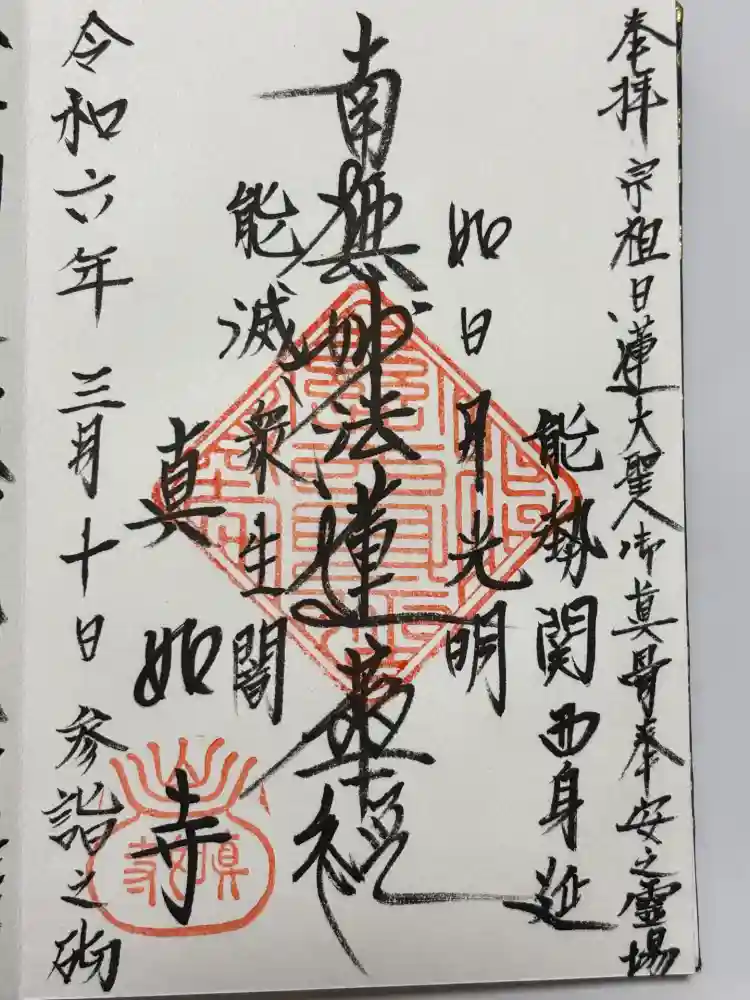 奉拝 宗祖日蓮大聖人御真骨奉安之霊場
能勢関西身延
如日月光明
南無妙法蓮華経
能滅衆生闇
真如寺
令和六年 三月十日 参詣之砌
真如寺